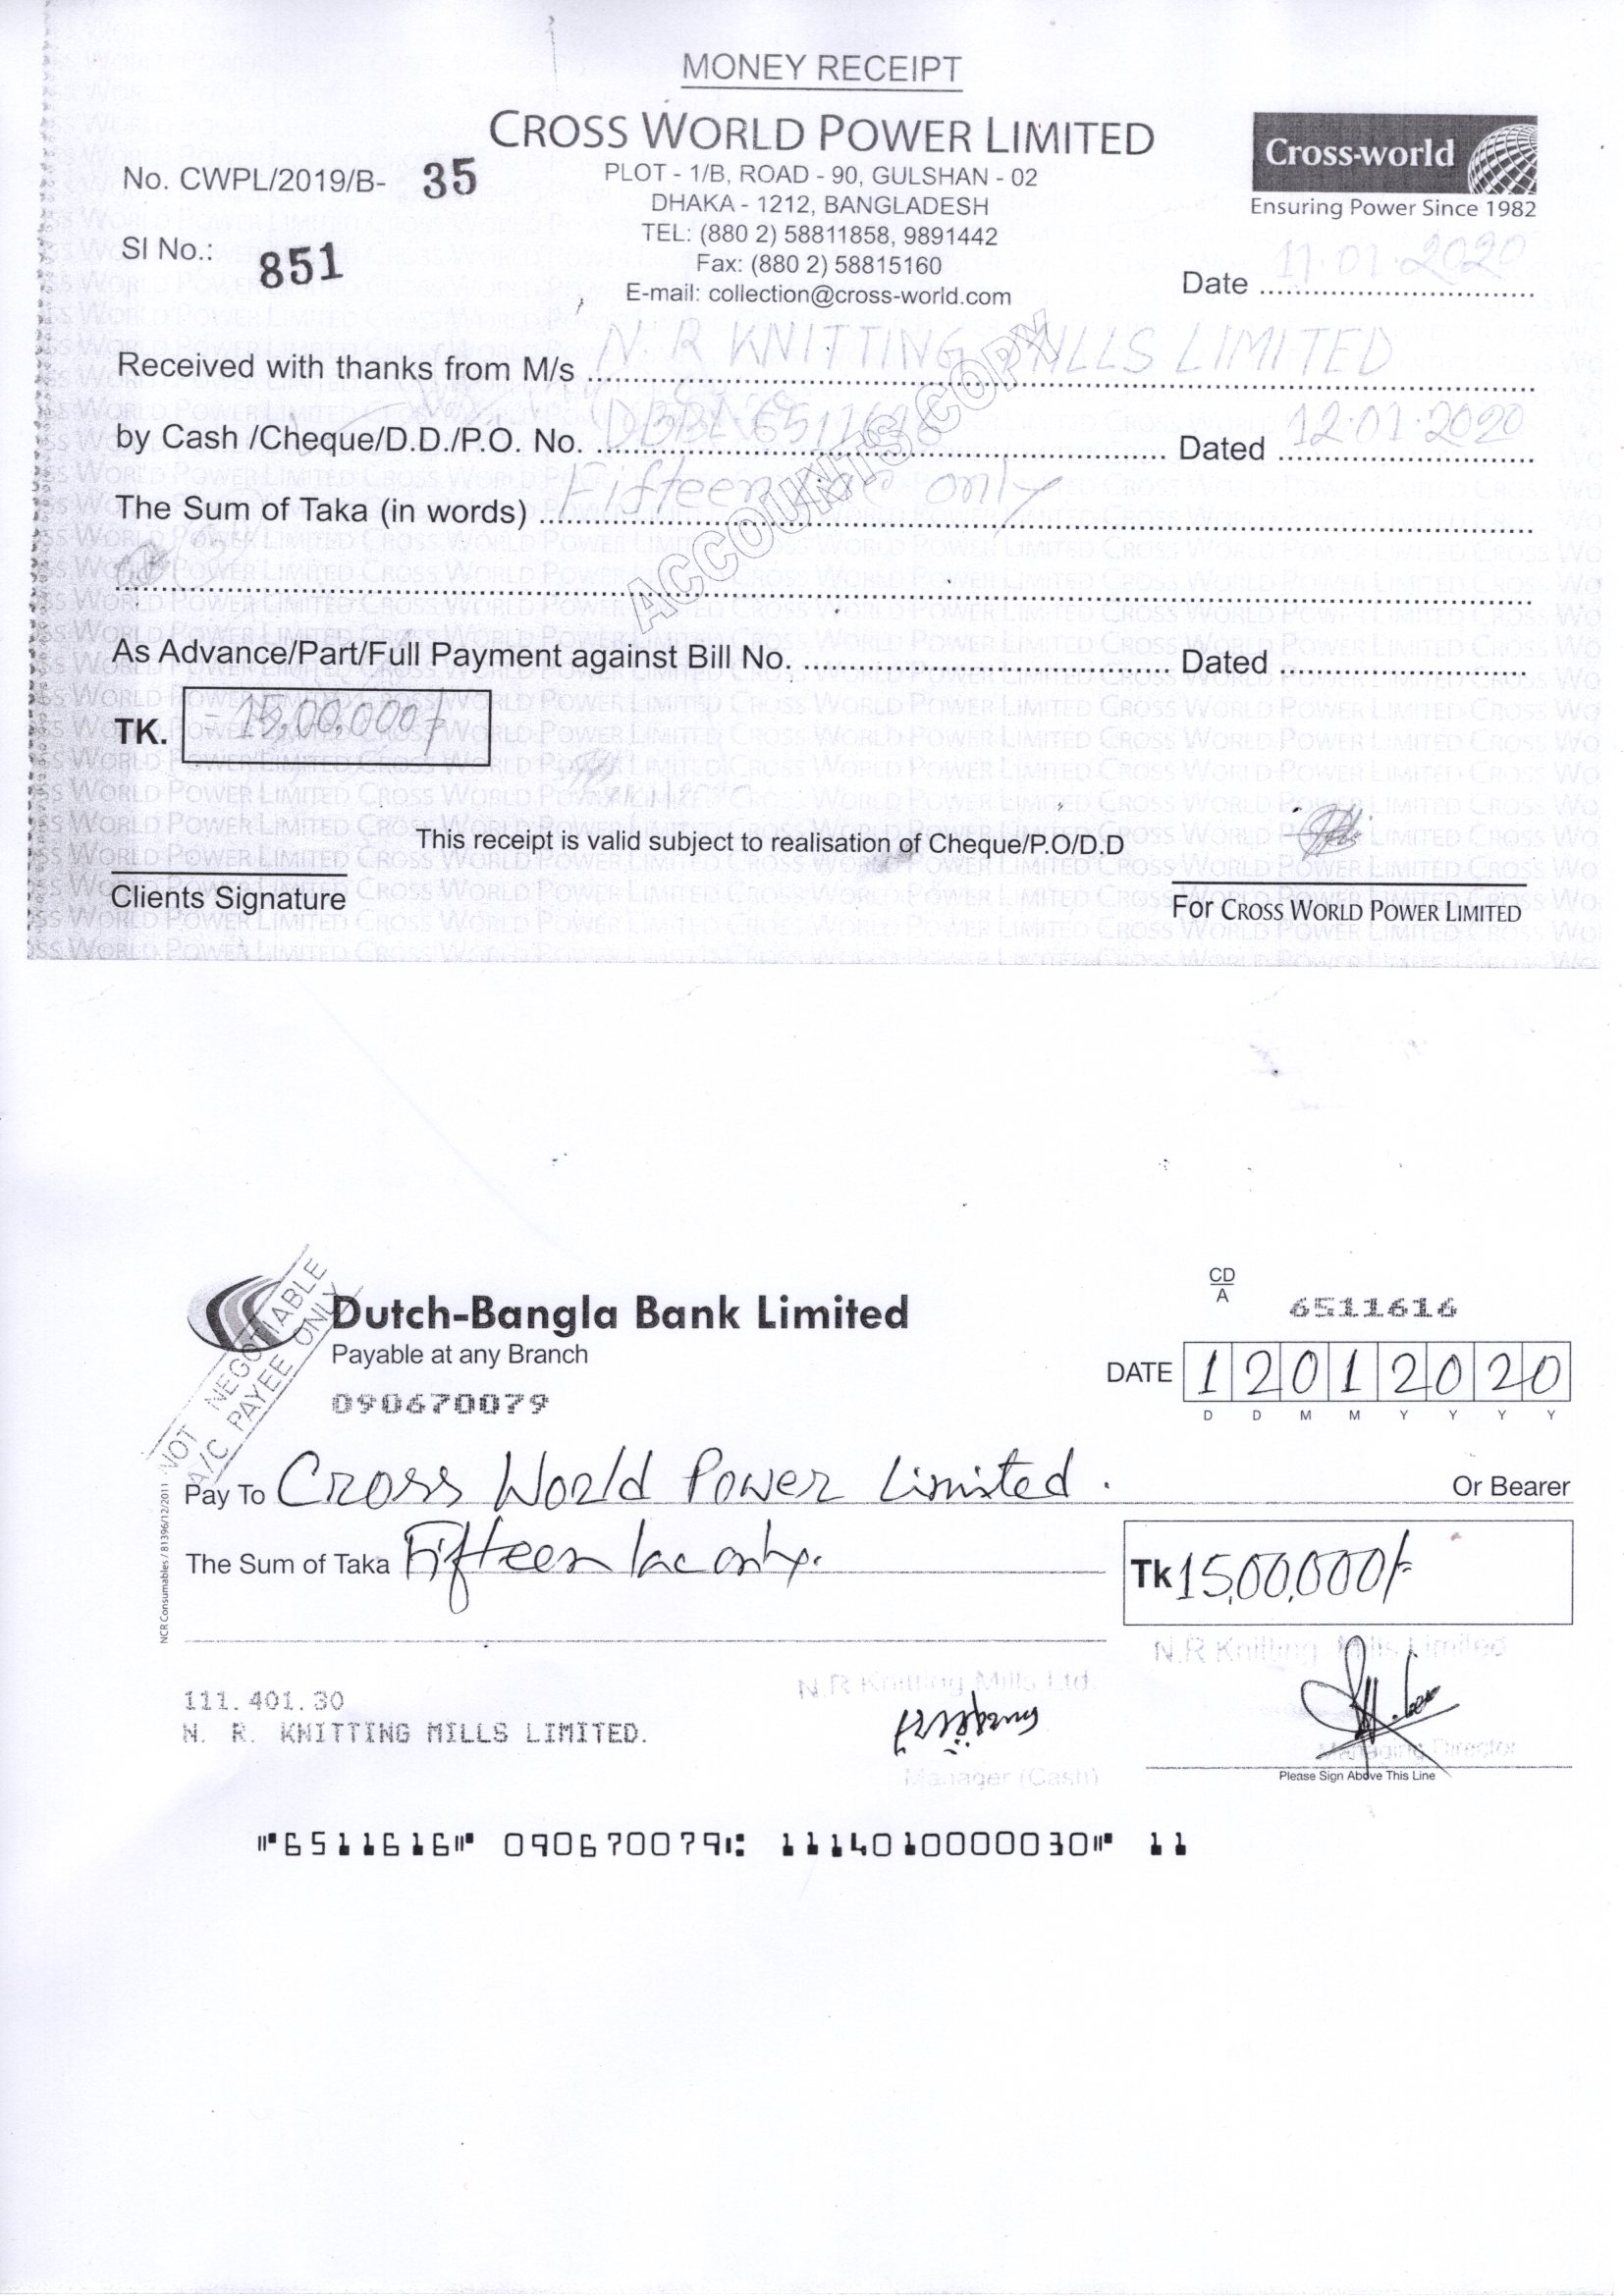 MONEY RECEIPT
CROSS WORLD POWER LIMITED
Cross-world
Ensuring Power Since 1982
No. CWPL/2019/B- 35
PLOT - 1/B, ROAD - 90, GULSHAN - 02
DHAKA - 1212, BANGLADESH
TEL: (880 2) 58811858, 9891442
Sl No.: 851
Fax: (880 2) 58815160
E-mail: collection@cross-world.com
Date 11.01.2020
Received with thanks from M/s N.R KNITTING MILLS LIMITED
by Cash /Cheque/D.D./P.O. No. DBBL 6511616 Dated 12.01.2020
The Sum of Taka (in words) Fifteen lac only
ACCOUNTS COPY
As Advance/Part/Full Payment against Bill No. Dated
TK. = 15,00,000/=
This receipt is valid subject to realisation of Cheque/P.O/D.D
Clients Signature
For CROSS WORLD POWER LIMITED
NOT NEGOTIABLE
A/C PAYEE ONLY
Dutch-Bangla Bank Limited
Payable at any Branch
090670079
CD
A
6511616
DATE 12012020
D D M M Y Y Y Y
Pay To Cross World Power Limited. Or Bearer
The Sum of Taka Fifteen lac only.
Tk 15,00,000/=
NCR Consumables / 81396/12/2011
111.401.30
N. R. KNITTING MILLS LIMITED.
N.R Knitting Mills Ltd.
Manager (Cash)
N.R Knitting Mills Limited
Managing Director
Please Sign Above This Line
⑈6511616⑈ 090670079⑆ 1114010000030⑈ 11